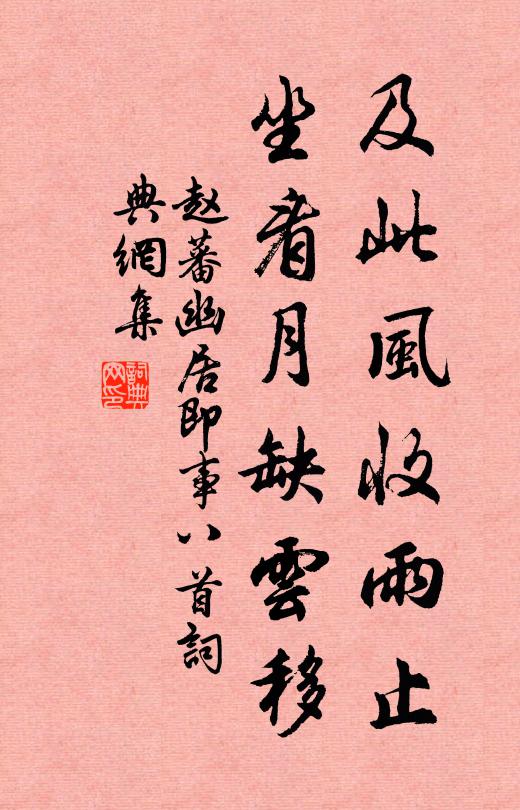 及此風收雨止
坐看月缺雲移
赵蕃幽居即事八首詞
典網集
詞典网印